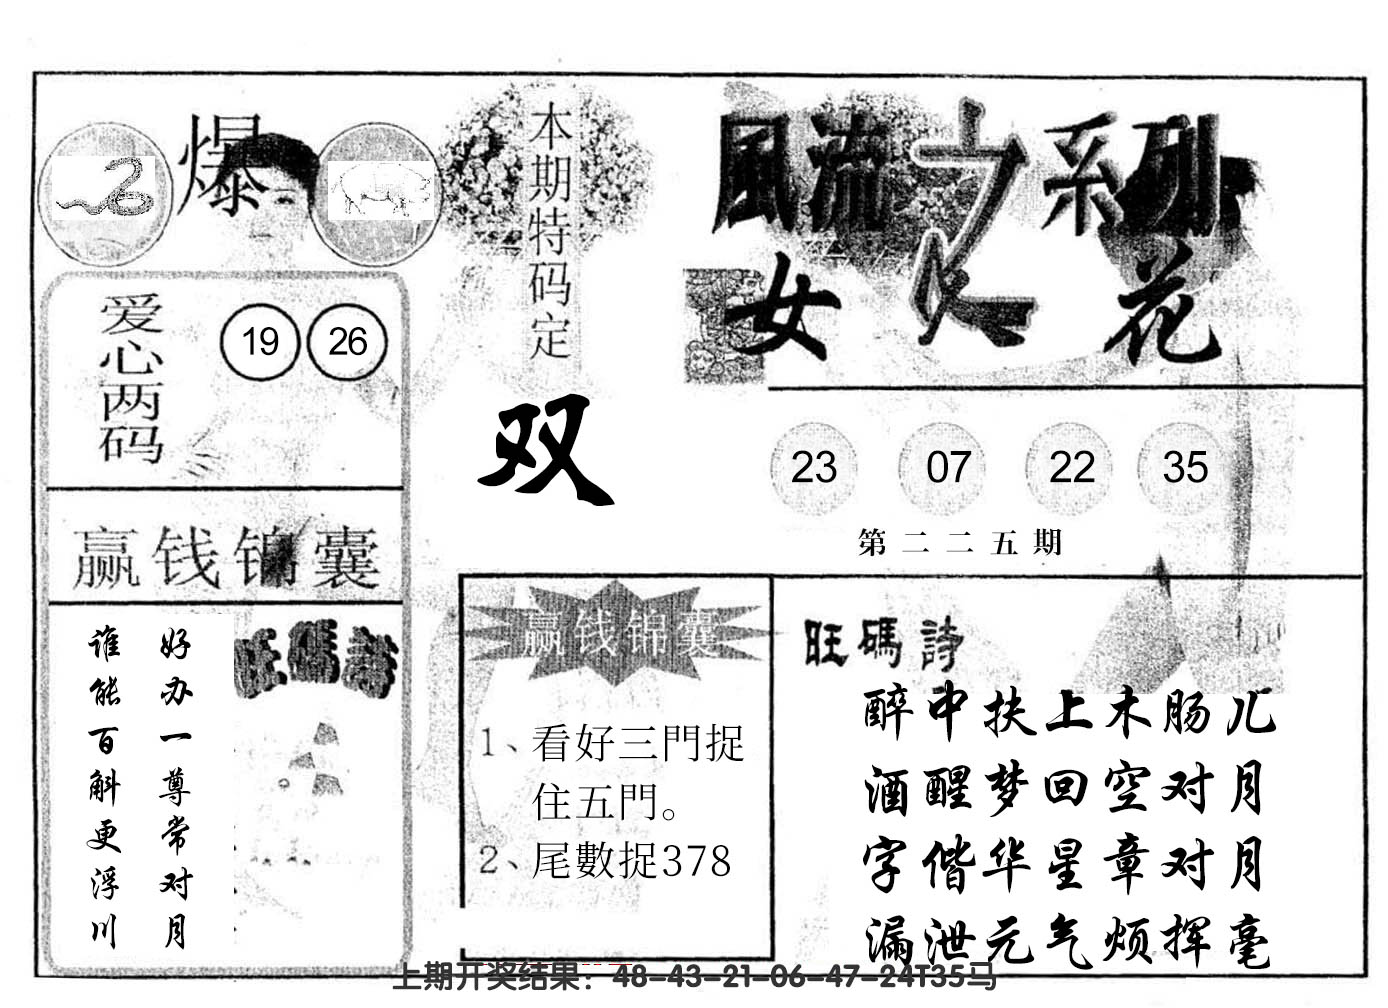 爆
本期特码定
双
風流之系列
女人花
爱心两码
19 26
23 07 22 35
第二二五期
赢钱锦囊
好办一尊常对月
谁能百斛更浮川
旺碼詩
赢钱锦囊
1、看好三門捉
住五門。
2、尾數捉378
旺碼詩
醉中扶上木肠儿
酒醒梦回空对月
字偕华星章对月
漏泄元气烦挥毫
上期开奖结果：48-43-21-06-47-24T35马